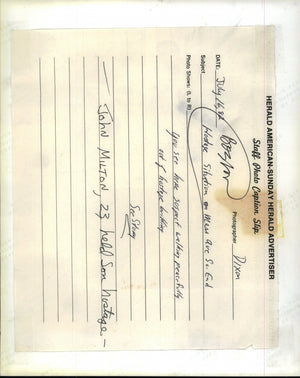 HERALD AMERICAN-SUNDAY HERALD ADVERTISER
Staff Photo Caption Slip
DATE: July 16 82 Photographer Dixon
Boston
Subject Hostage Situation on Mass Ave So End
Photo Shows: (L to R)
You see here suspect walking peacefully
out of hostage building
See Story
— JOHN MILTON, 23, held son hostage —